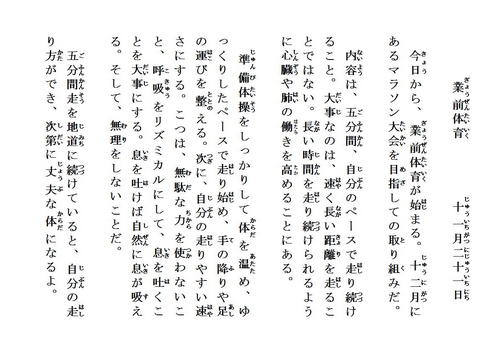 業前体育　十一月二十一日
今日から、業前体育が始まる。十二月に
あるマラソン大会を目指しての取り組みだ。
内容は、五分間、自分のペースで走り続け
ること。大事なのは、速く長い距離を走るこ
とではない。長い時間を走り続けられるよう
に心臓や肺の働きを高めることにある。
準備体操をしっかりして体を温め、ゆ
っくりしたペースで走り始め、手の降りや足
の運びを整える。次に、自分の走りやすい速
さにする。こつは、無駄な力を使わないこ
と、呼吸をリズミカルにして、息を吐くこ
とを大事にする。息を吐けば自然に息が吸え
る。そして、無理をしないことだ。
五分間走を地道に続けていると、自分の走
り方ができ、次第に丈夫な体になるよ。